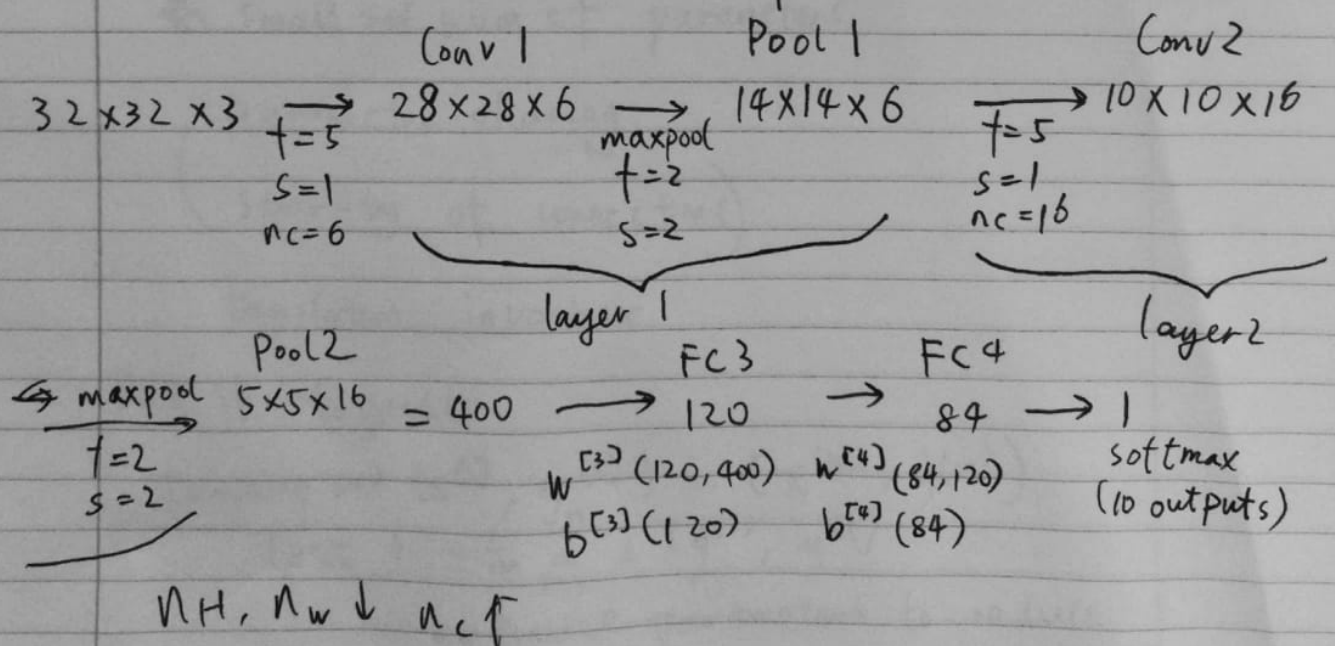 Conv 1 Pool 1 Conv 2
32×32×3 → 28×28×6 → 14×14×6 → 10×10×16
f=5 maxpool f=5
s=1 f=2 s=1
nc=6 s=2 nc=16
layer 1 layer 2
Pool 2 FC 3 FC 4
↪ maxpool → 5×5×16 = 400 → 120 → 84 → 1
f=2 w[3](120,400) w[4](84,120) softmax
s=2 b[3](120) b[4](84) (10 outputs)
nH, nw ↓ nc ↑